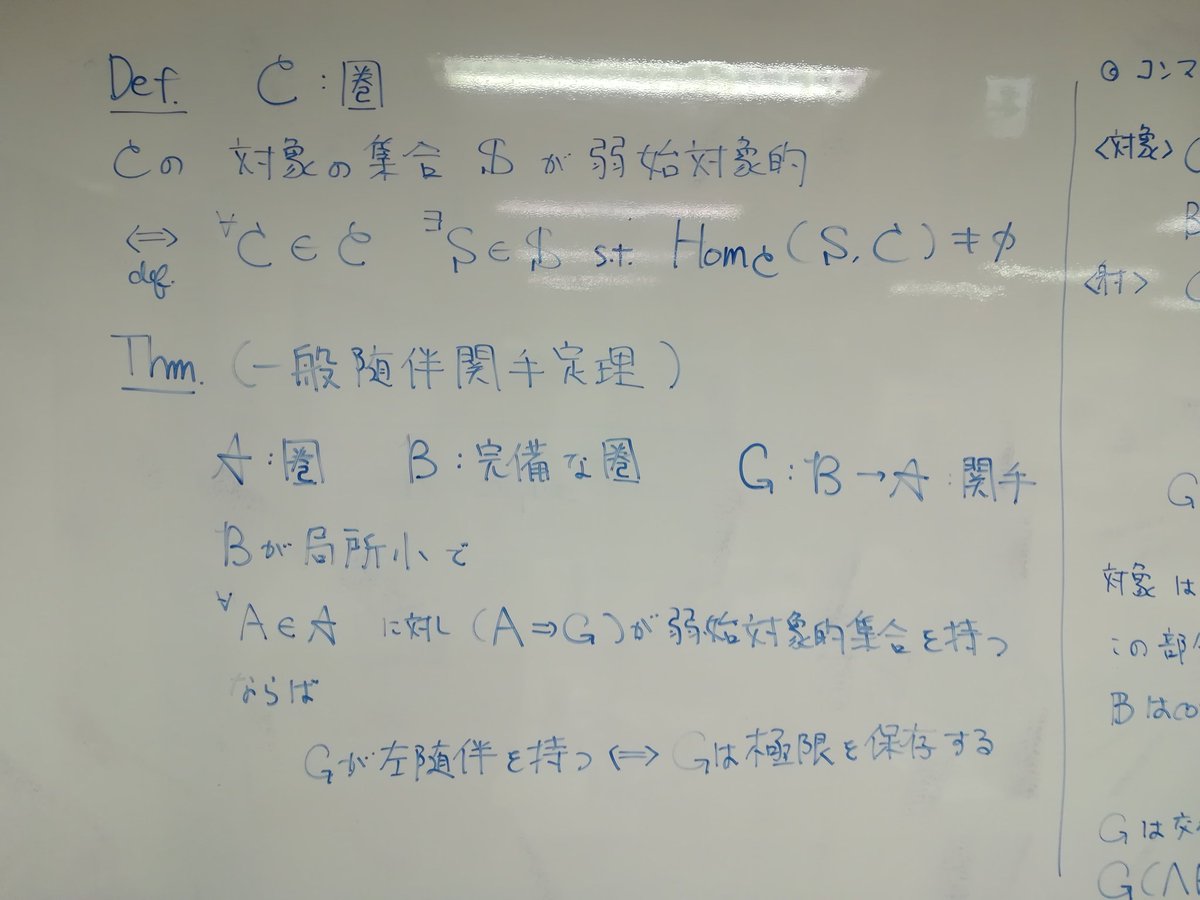 Def. C : 圏
Cの 対象の集合 S が 弱始対象的
⇔ def. ∀C ∈ C ∃S ∈ S s.t. Hom_C(S, C) ≠ ∅
Thm. (一般随伴関手定理)
A : 圏 B : 完備な圏 G : B → A : 関手
Bが局所小で
∀A ∈ A に対し (A ⇒ G) が弱始対象的集合を持つ
ならば
Gが左随伴を持つ ⇔ Gは極限を保存する
◎ コンマ
<対象> (
B
<射> (
G
対象 は
この部分
Bはco
G は交
G(∧B